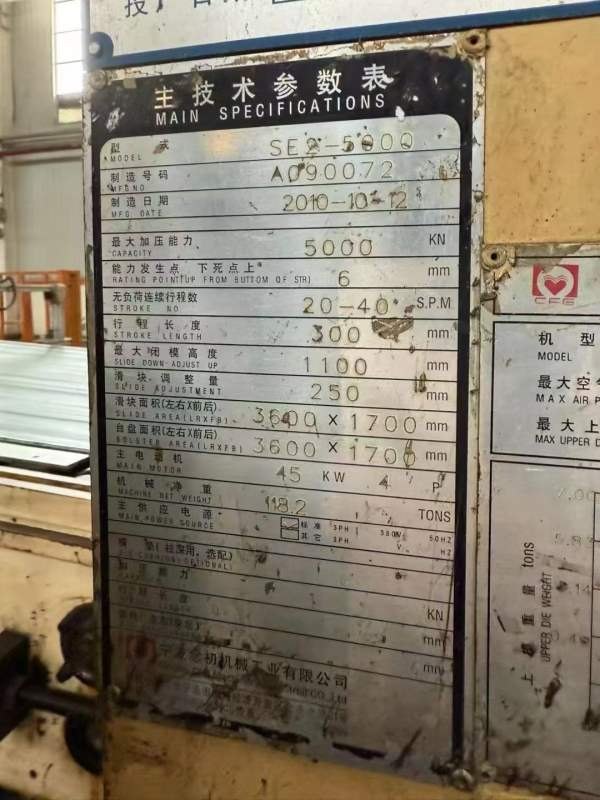 主技术参数表
MAIN SPECIFICATIONS
型 式 SE2-5000
MODEL
制造号码 A090072
MFG NO
制造日期 2010-10-12
MFG DATE
最大加压能力 5000 KN
CAPACITY
能力发生点 下死点上 6 mm
RATING POINT(UP FROM BUTTOM OF STR)
无负荷连续行程数 20-40 S.P.M
STROKE NO
行程长度 300 mm
STROKE LENGTH
最大闭模高度 1100 mm
SLIDE DOWN ADJUST UP
滑块调整量 250 mm
SLIDE ADJUSTMENT
滑块面积(左右X前后) 3600 X 1700 mm
SLIDE AREA(LRXFB)
台盘面积(左右X前后) 3600 X 1700 mm
BOLSTER AREA(LRXFB)
主电动机 45 KW 4 P
MAIN MOTOR
机械净重 118.2 TONS
MACHINE NET WEIGHT
主供应电源 标准 3PH 380V 50HZ
MAIN POWER SOURCE 其它 3PH V HZ
KN
mm
mm
机械工业有限公司
CFG
机型
MODEL
最大空
MAX AIR P
最大上
MAX UPPER D
上模重量 tons
UPPER DIE WEIGHT